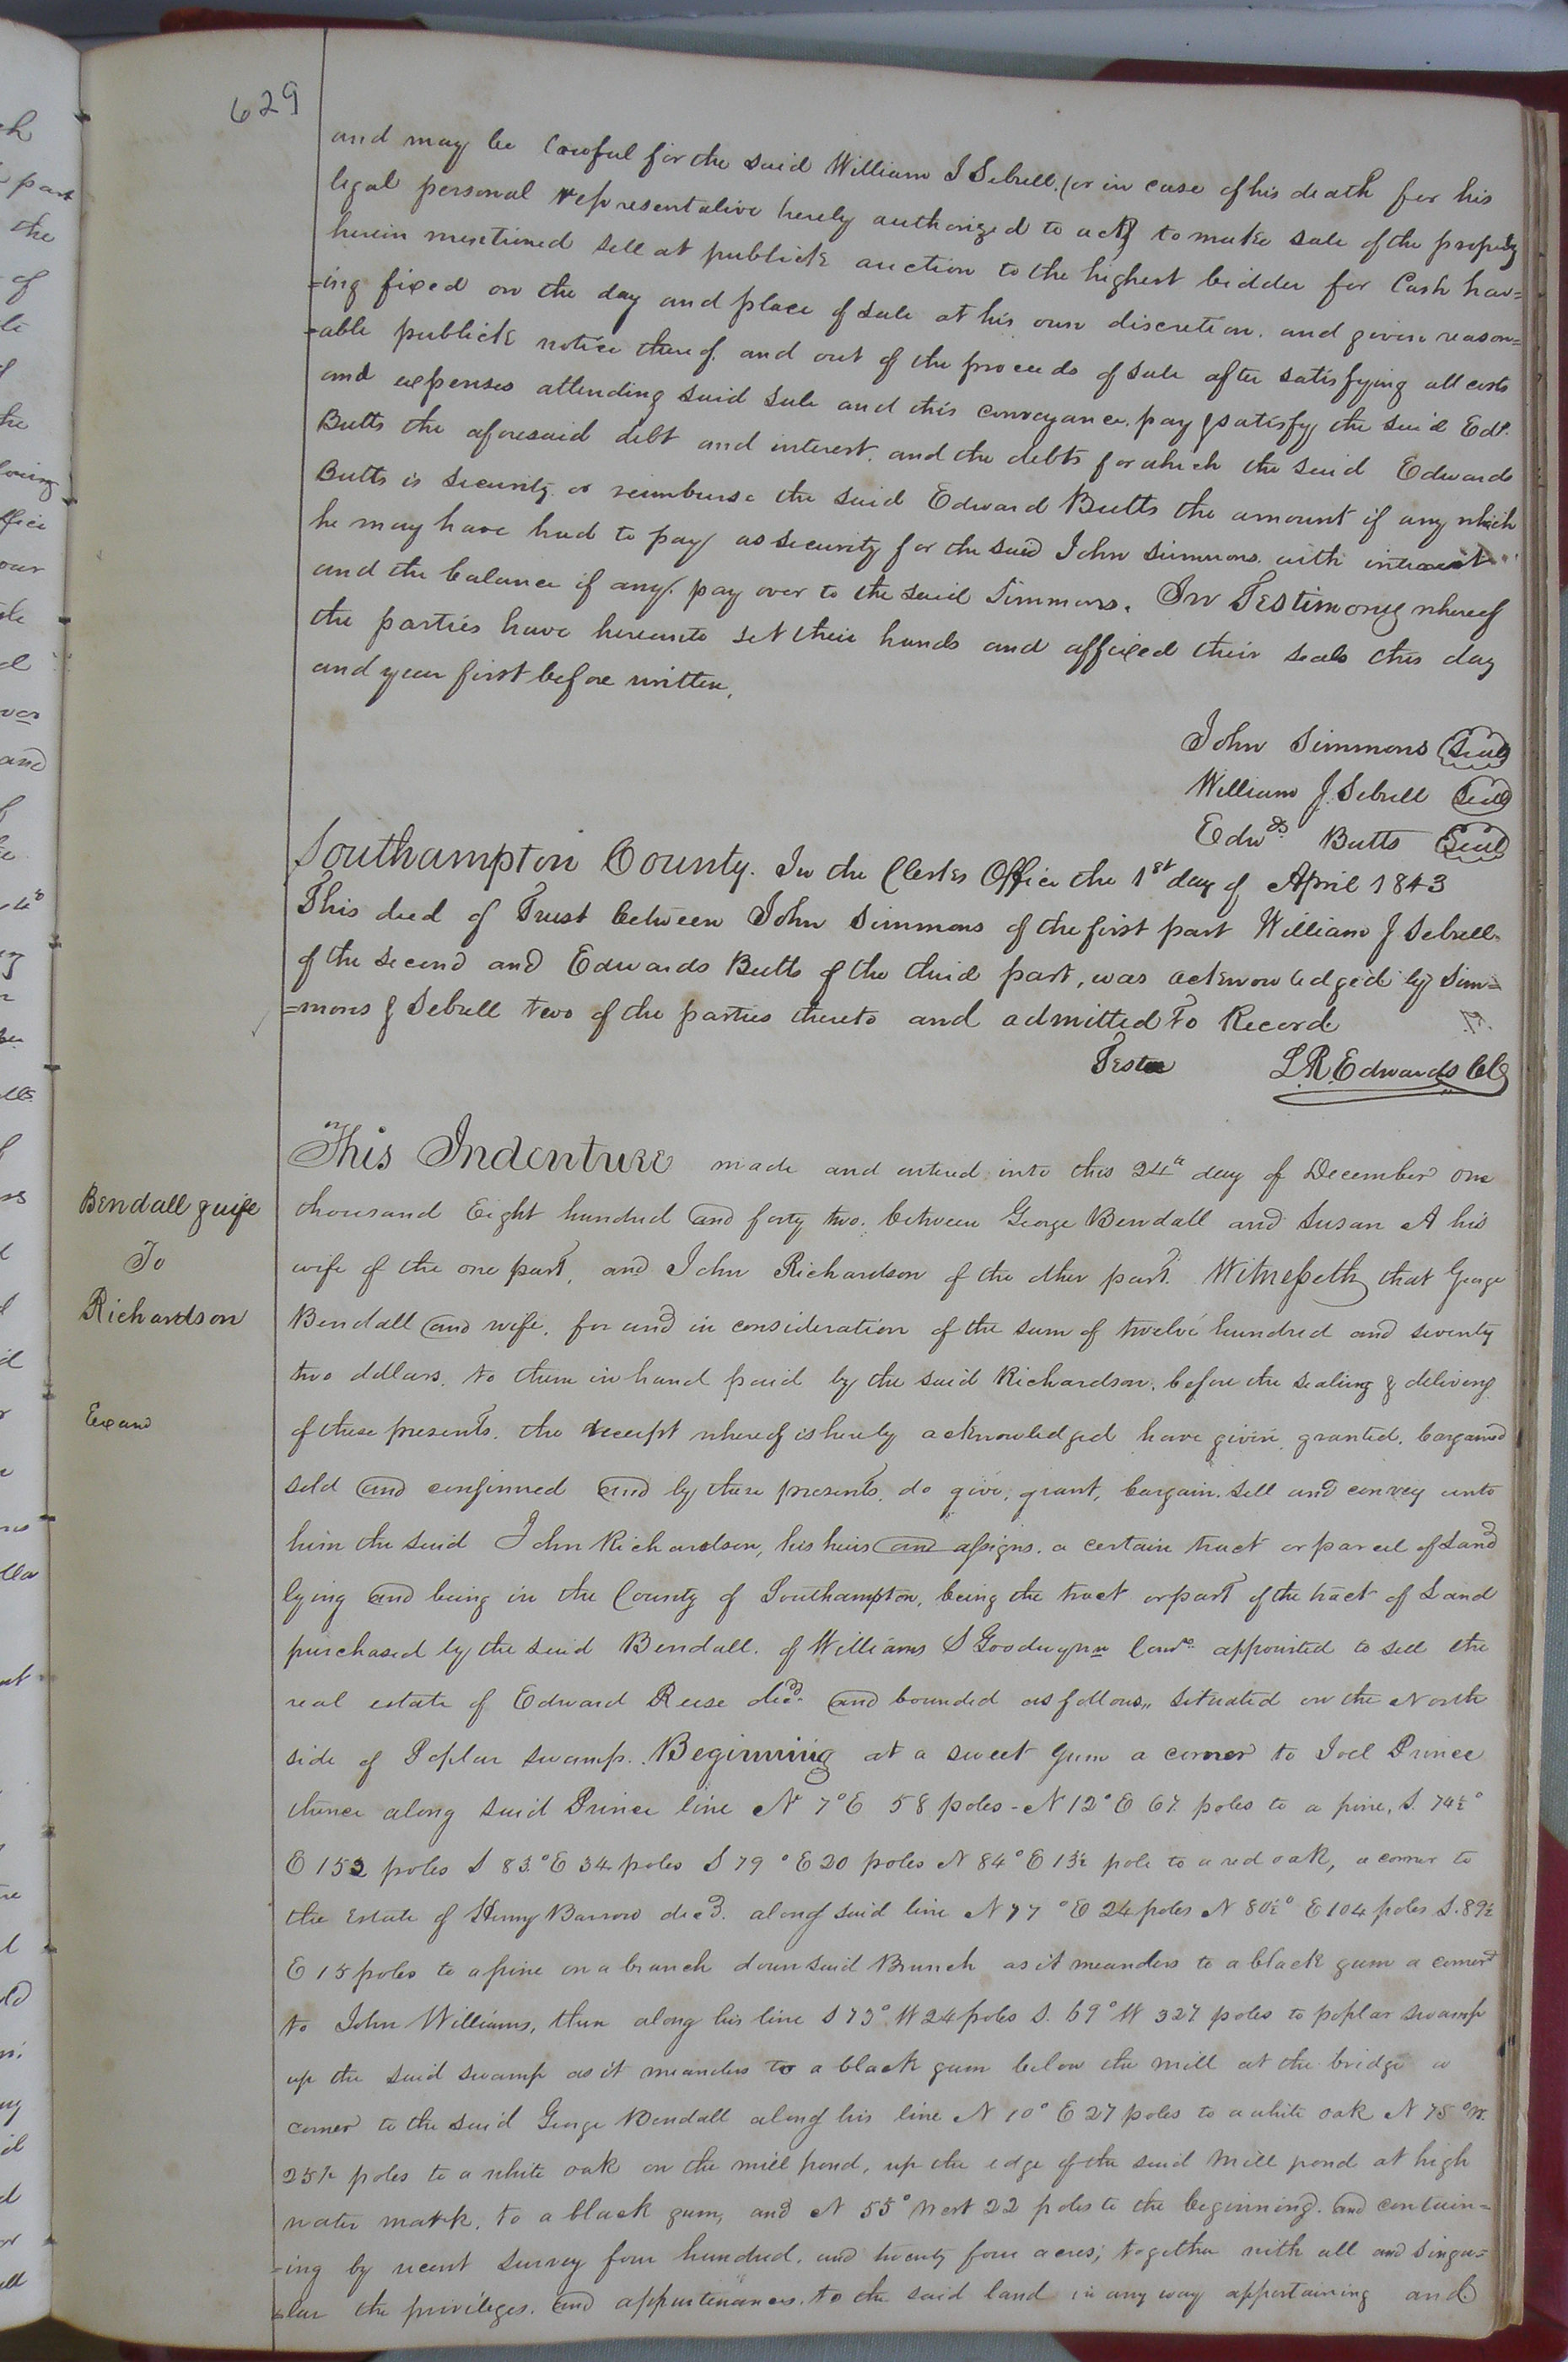 629
and may be lawful for the said William J Sebrell (or in case of his death for his
legal personal representative hereby authorized to act) to make sale of the property
herein mentioned sell at publick auction to the highest bidder for Cash hav=
=ing fixed on the day and place of sale at his own discretion. and given reason=
=able publick notice thereof. and out of the proceeds of sale after satisfying all costs
and expenses attending said sale and this conveyance. pay & satisfy the said Edd.
Butts the aforesaid debt and interest. and the debts for which the said Edwards
Butts is security. or reimburse the said Edward Butts the amount if any which
he may have had to pay as security for the said John Simmons. with interest
and the balance if any. pay over to the said Simmons. In Testimony whereof
the parties have hereunto set their hands and affixed their seals this day
and year first before written.
John Simmons Seal
William J. Sebrell Seal
Edwds. Butts Seal
Southampton County. In the Clerks Office the 1st day of April 1843
This deed of Trust between John Simmons of the first part William J Sebrell
of the second and Edwards Butts of the third part, was acknowledged by Sim=
=mons & Sebrell two of the parties thereto and admitted to Record
Teste L.R. Edwards Clk
This Indenture made and entered into this 24th day of December one
Bendall & wife
To
Richardson
Exand
thousand Eight hundred and forty two. between George Bendall and Susan A his
wife of the one part, and John Richardson of the other part. Witnesseth that George
Bendall and wife, for and in consideration of the sum of twelve hundred and seventy
two dollars. to them in hand paid by the said Richardson. before the sealing & delivery
of these presents. the receipt whereof is hereby acknowledged have given, granted, bargained
sold and confirmed and by these presents. do give, grant, bargain. sell and convey unto
him the said John Richardson, his heirs and assigns. a certain tract or parcel of Land
lying and being in the County of Southampton, being the tract or part of the tract of Land
purchased by the said Bendall. of Williams S Goodwynn Comr. appointed to sell the
real estate of Edward Reese decd. and bounded as follows,, situated on the North
side of Poplar swamp. Beginning at a sweet gum a corner to Joel Prince
thence along said Prince line N 7° E 58 poles - N 12° E 67 poles to a pine, S. 74½°
E 152 poles S 83° E 34 poles S 79° E 20 poles N 84° E 13½ pole to a red oak, a corner to
the Estate of Henry Barrow decd. along said line N 77° E 24 poles N 80½° E 104 poles S. 89½
E 15 poles to a pine on a branch down said Branch as it meanders to a black gum a corner
to John Williams, then along his line S 73° W 24 poles S. 69° W 327 poles to poplar swamp
up the said swamp as it meanders to a black gum below the mill at the bridge a
corner to the said George Bendall along his line N 10° E 27 poles to a white oak N 75° W.
25½ poles to a white oak on the mill pond, up the edge of the said Mill pond at high
water mark. to a black gum, and N 55° West 22 poles to the beginning. and contain=
=ing by recent survey four hundred. and twenty four acres; together with all and singu=
=lar the privileges. and appurtenances. to the said land in any way appertaining and